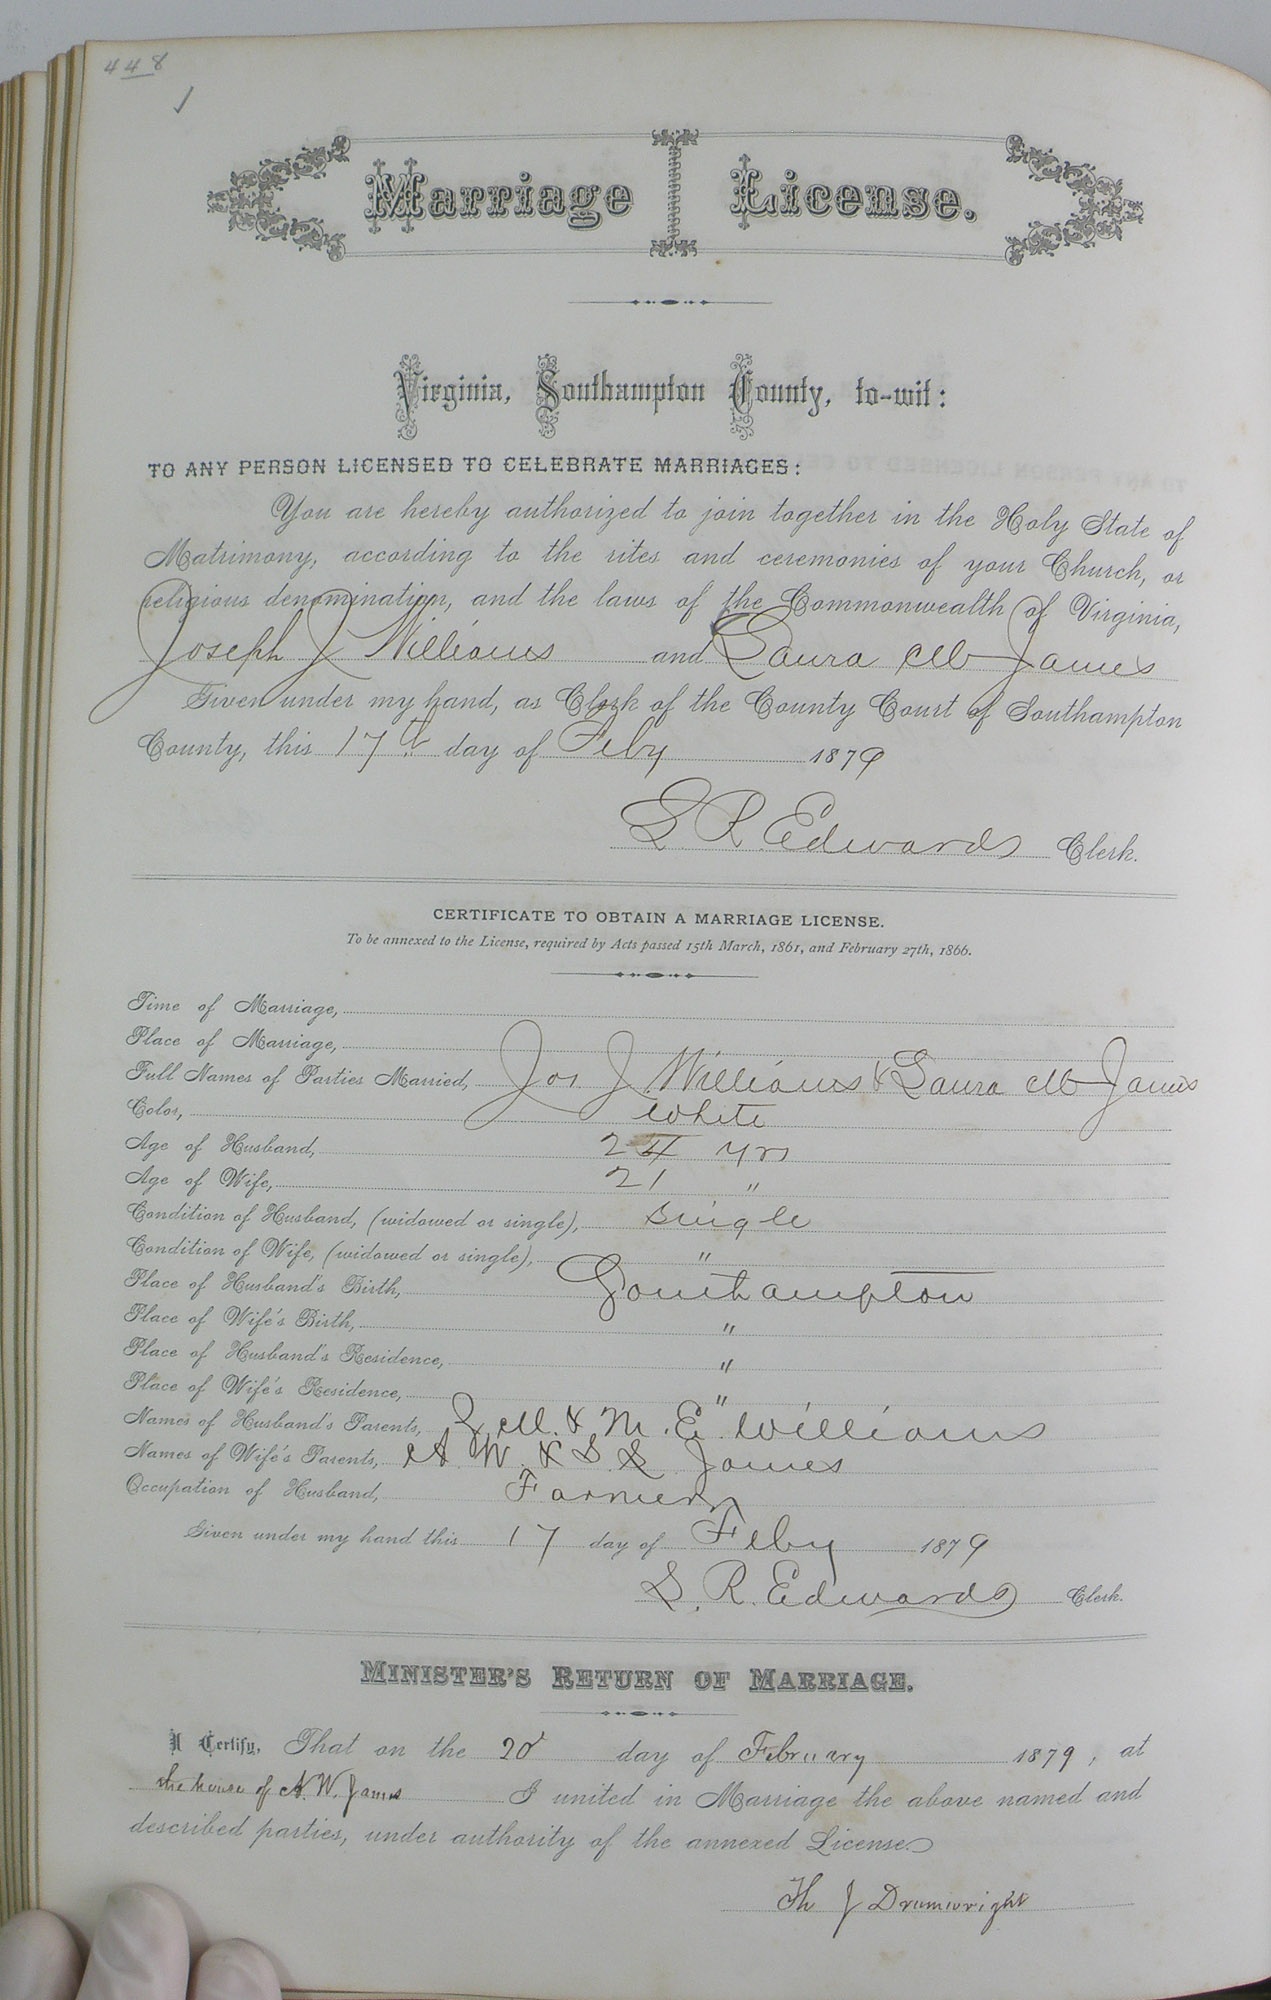 448
Marriage License.
Virginia, Southampton County, to-wit:
TO ANY PERSON LICENSED TO CELEBRATE MARRIAGES:
You are hereby authorized to join together in the Holy State of
Matrimony, according to the rites and ceremonies of your Church, or
religious denomination, and the laws of the Commonwealth of Virginia,
Joseph J Williams and Laura M James
Given under my hand, as Clerk of the County Court of Southampton
County, this 17th day of Feby 1879
L. R. Edwards Clerk.
CERTIFICATE TO OBTAIN A MARRIAGE LICENSE.
To be annexed to the License, required by Acts passed 15th March, 1861, and February 27th, 1866.
Time of Marriage,
Place of Marriage,
Full Names of Parties Married, Jos J Williams & Laura M James
Color, White
Age of Husband, 24 yrs
Age of Wife, 21 "
Condition of Husband, (widowed or single), single
Condition of Wife, (widowed or single), "
Place of Husband's Birth, Southampton
Place of Wife's Birth, "
Place of Husband's Residence, "
Place of Wife's Residence, "
Names of Husband's Parents, M. & M. E. Williams
Names of Wife's Parents, A W. & S. James
Occupation of Husband, Farmer
Given under my hand this 17 day of Feby 1879
L. R. Edwards Clerk.
MINISTER'S RETURN OF MARRIAGE.
I Certify, That on the 20 day of February 1879, at
the house of A. W. James I united in Marriage the above named and
described parties, under authority of the annexed License.
Th J Drumwright